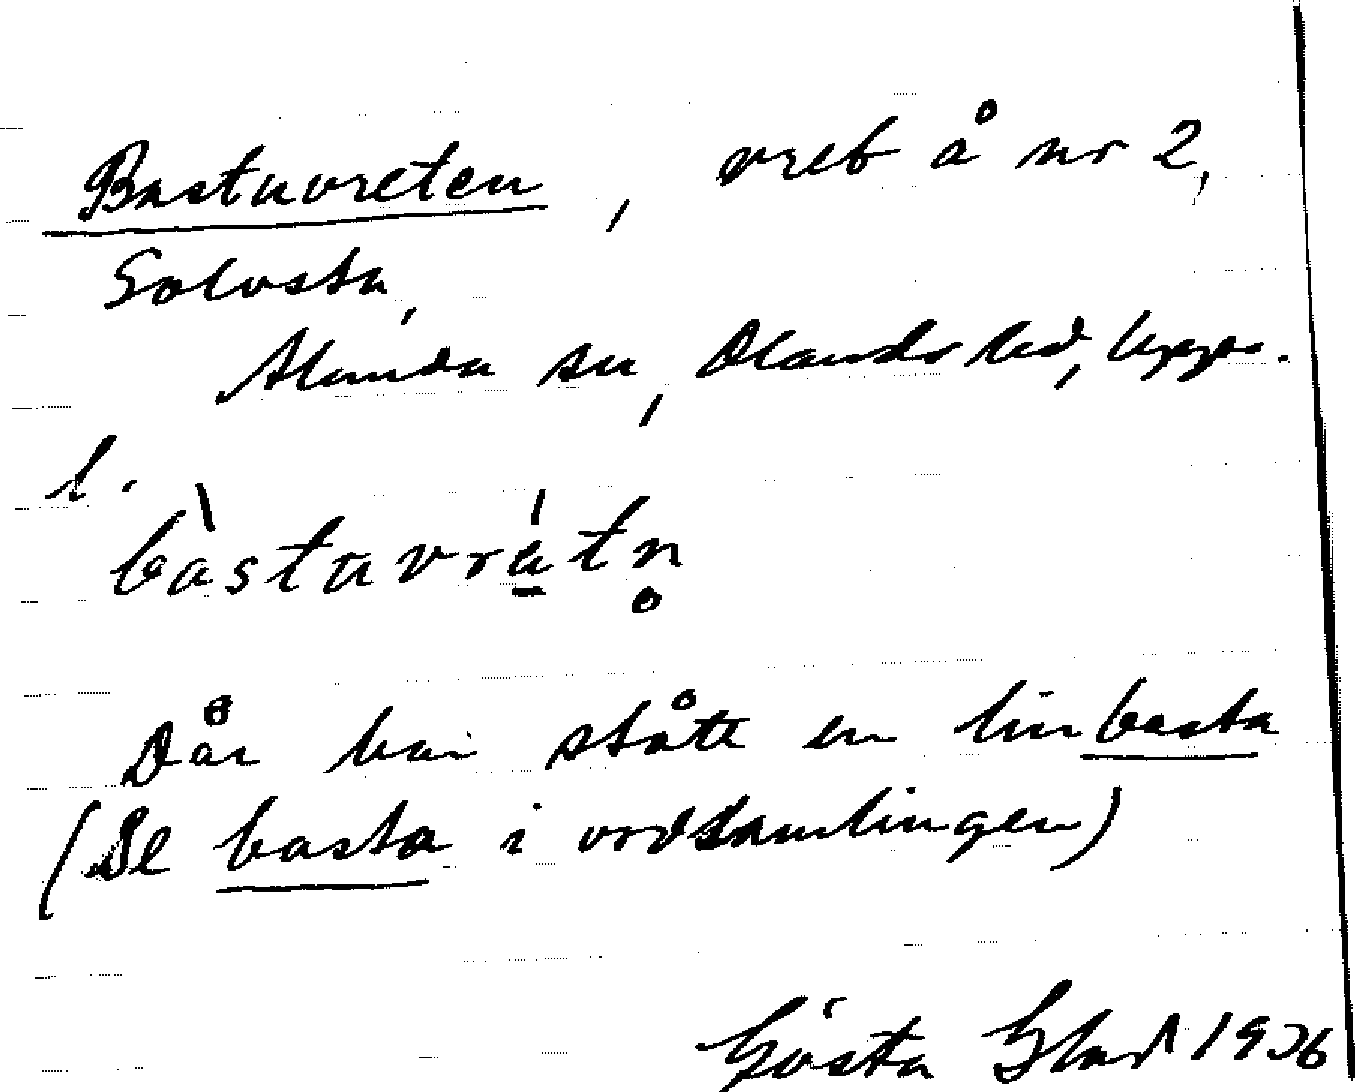 Bastuvreten, vret å nr 2,
Golvsta,
Alunda sn, Olands hd, Upps.
l.
bàstavrátn̥
Där har stått en linbasta
(Se basta i ordsamlingen)
Gösta 1936